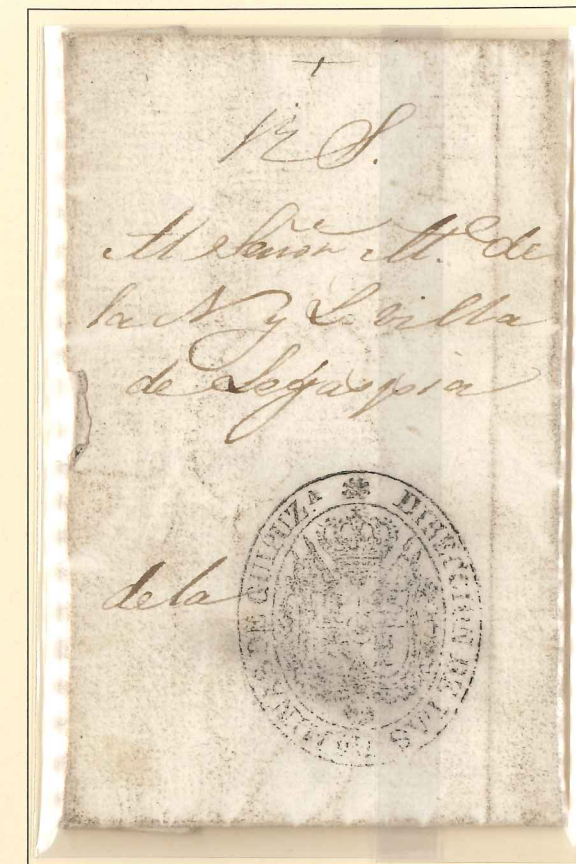 +
R S.
Al Señor Al.e de
la N y L. villa
de Legaspia
de la
DIRECCION DE LAS DE GUIPUZA